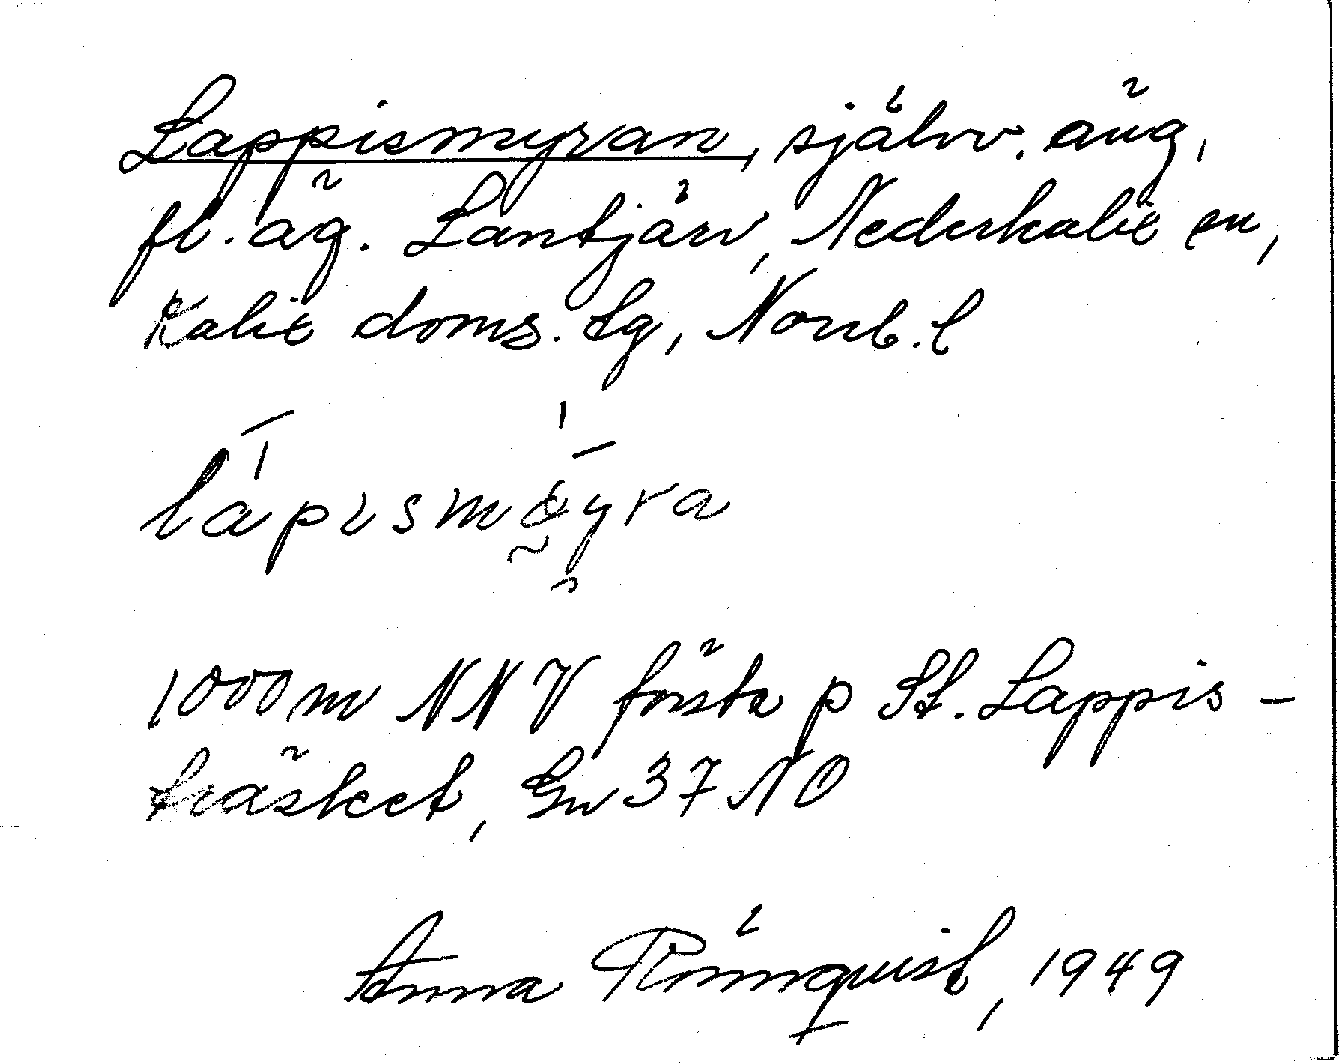 Lappismyran, självv. äng,
fl. äg. Lantjärv, Nederkalix sn,
Kalix doms. tg, Norrb. l
1000 m NNV första p St. Lappis-
träsket, Gn 37 NO
Anna Rönnquist, 1949